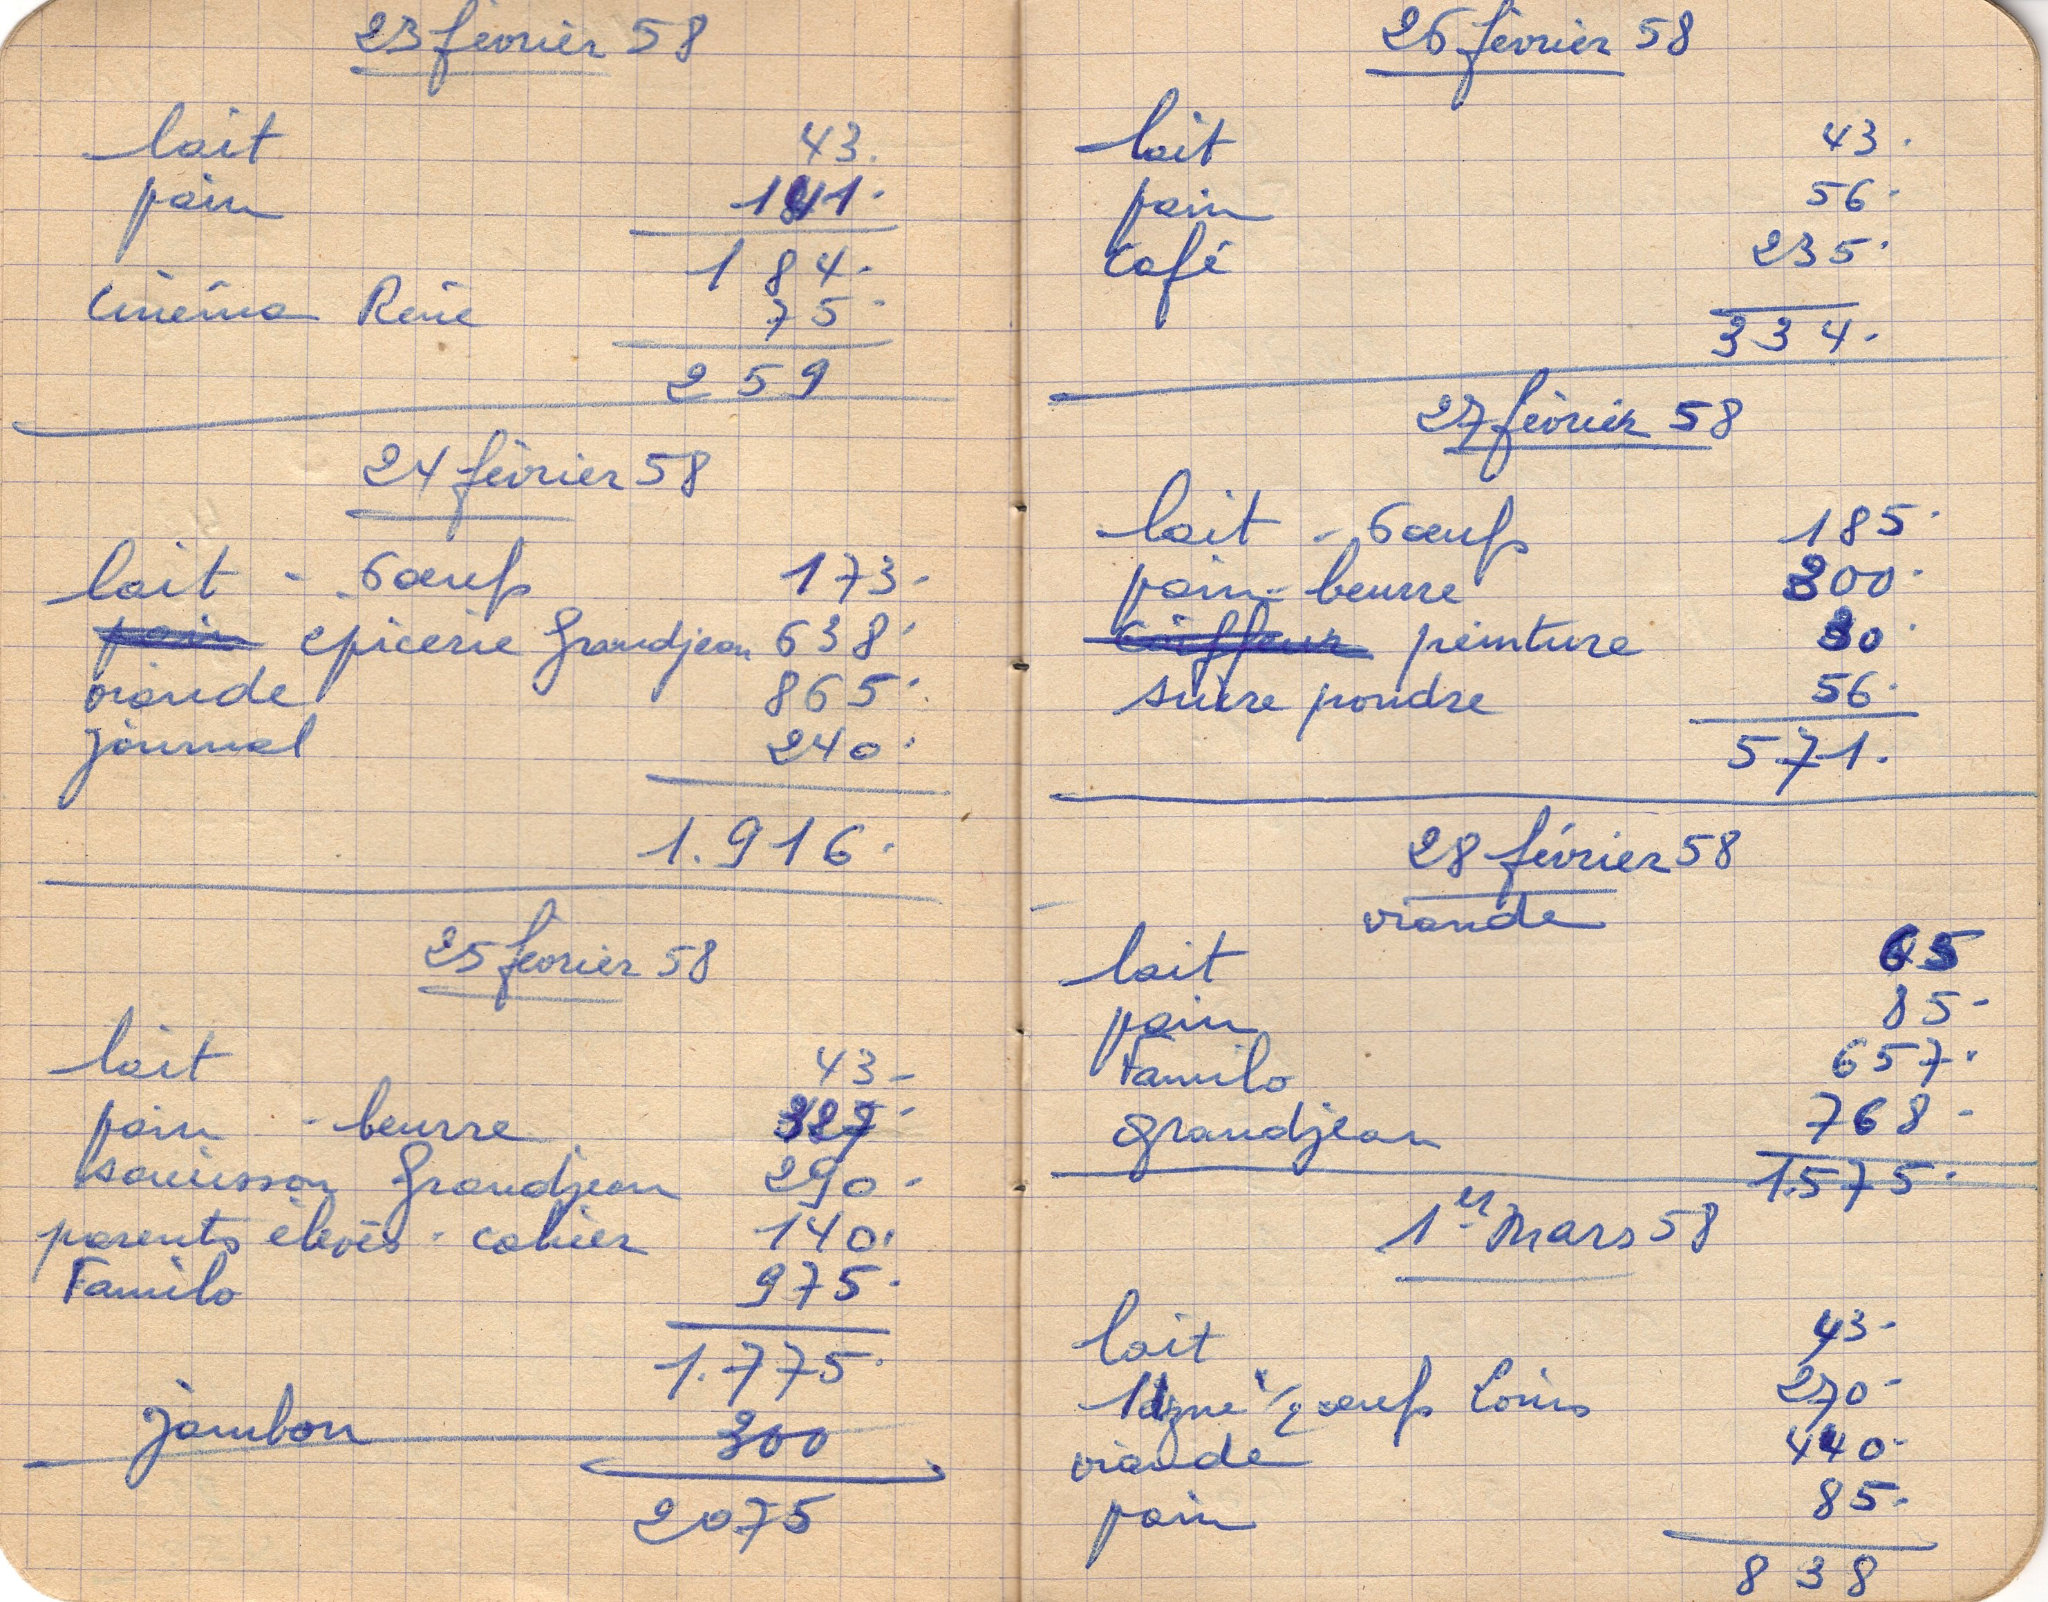 23 février 58
lait 43.
pain 141.
184.
cinéma René 75.
259
24 février 58
lait - 6 œufs 173.
epicerie Grandjean 638.
viande 865.
journal 240.
1.916.
25 février 58
lait 43-
pain - beurre 327.
saucisson Grandjean 290.
parents élèves. cahier 140.
Familo 975.
1.775.
jambon 300
2075
26 février 58
lait 43.
pain 56.
Café 235.
334.
27 février 58
lait - 6 œufs 185.
pain - beurre 300.
peinture 30.
sucre poudre 56.
571.
28 février 58
viande
lait 65
pain 85-
Familo 657.
Grandjean 768-
1.575.
1er Mars 58
lait 43-
1/2 œufs Louis 270-
viande 440-
pain 85-
838